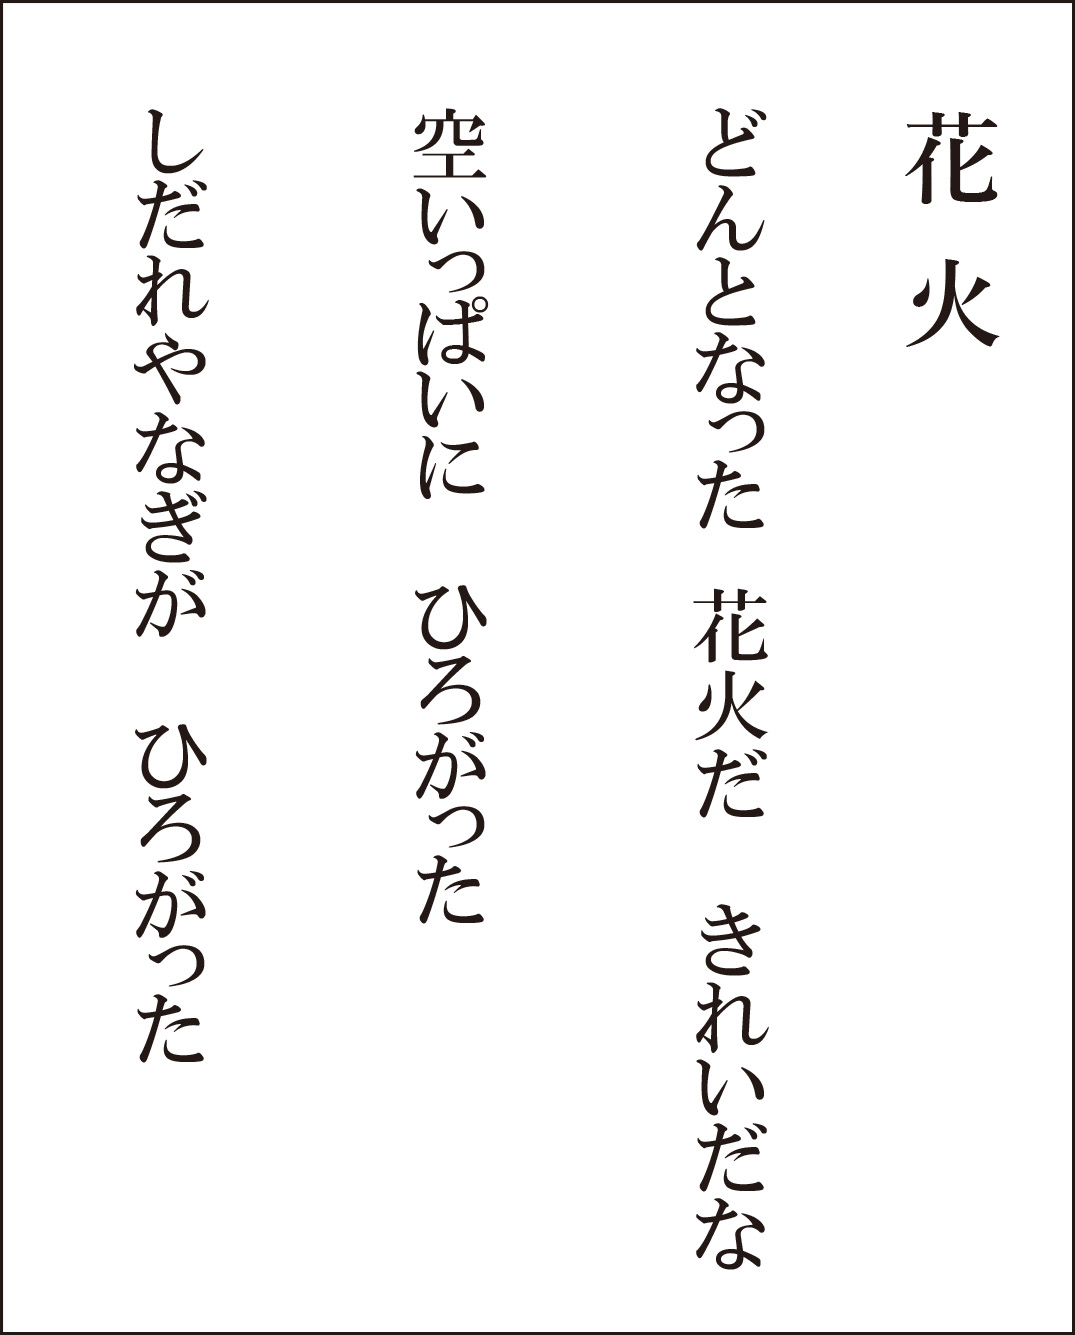 花火
どんとなった　花火だ　きれいだな
空いっぱいに　ひろがった
しだれやなぎが　ひろがった